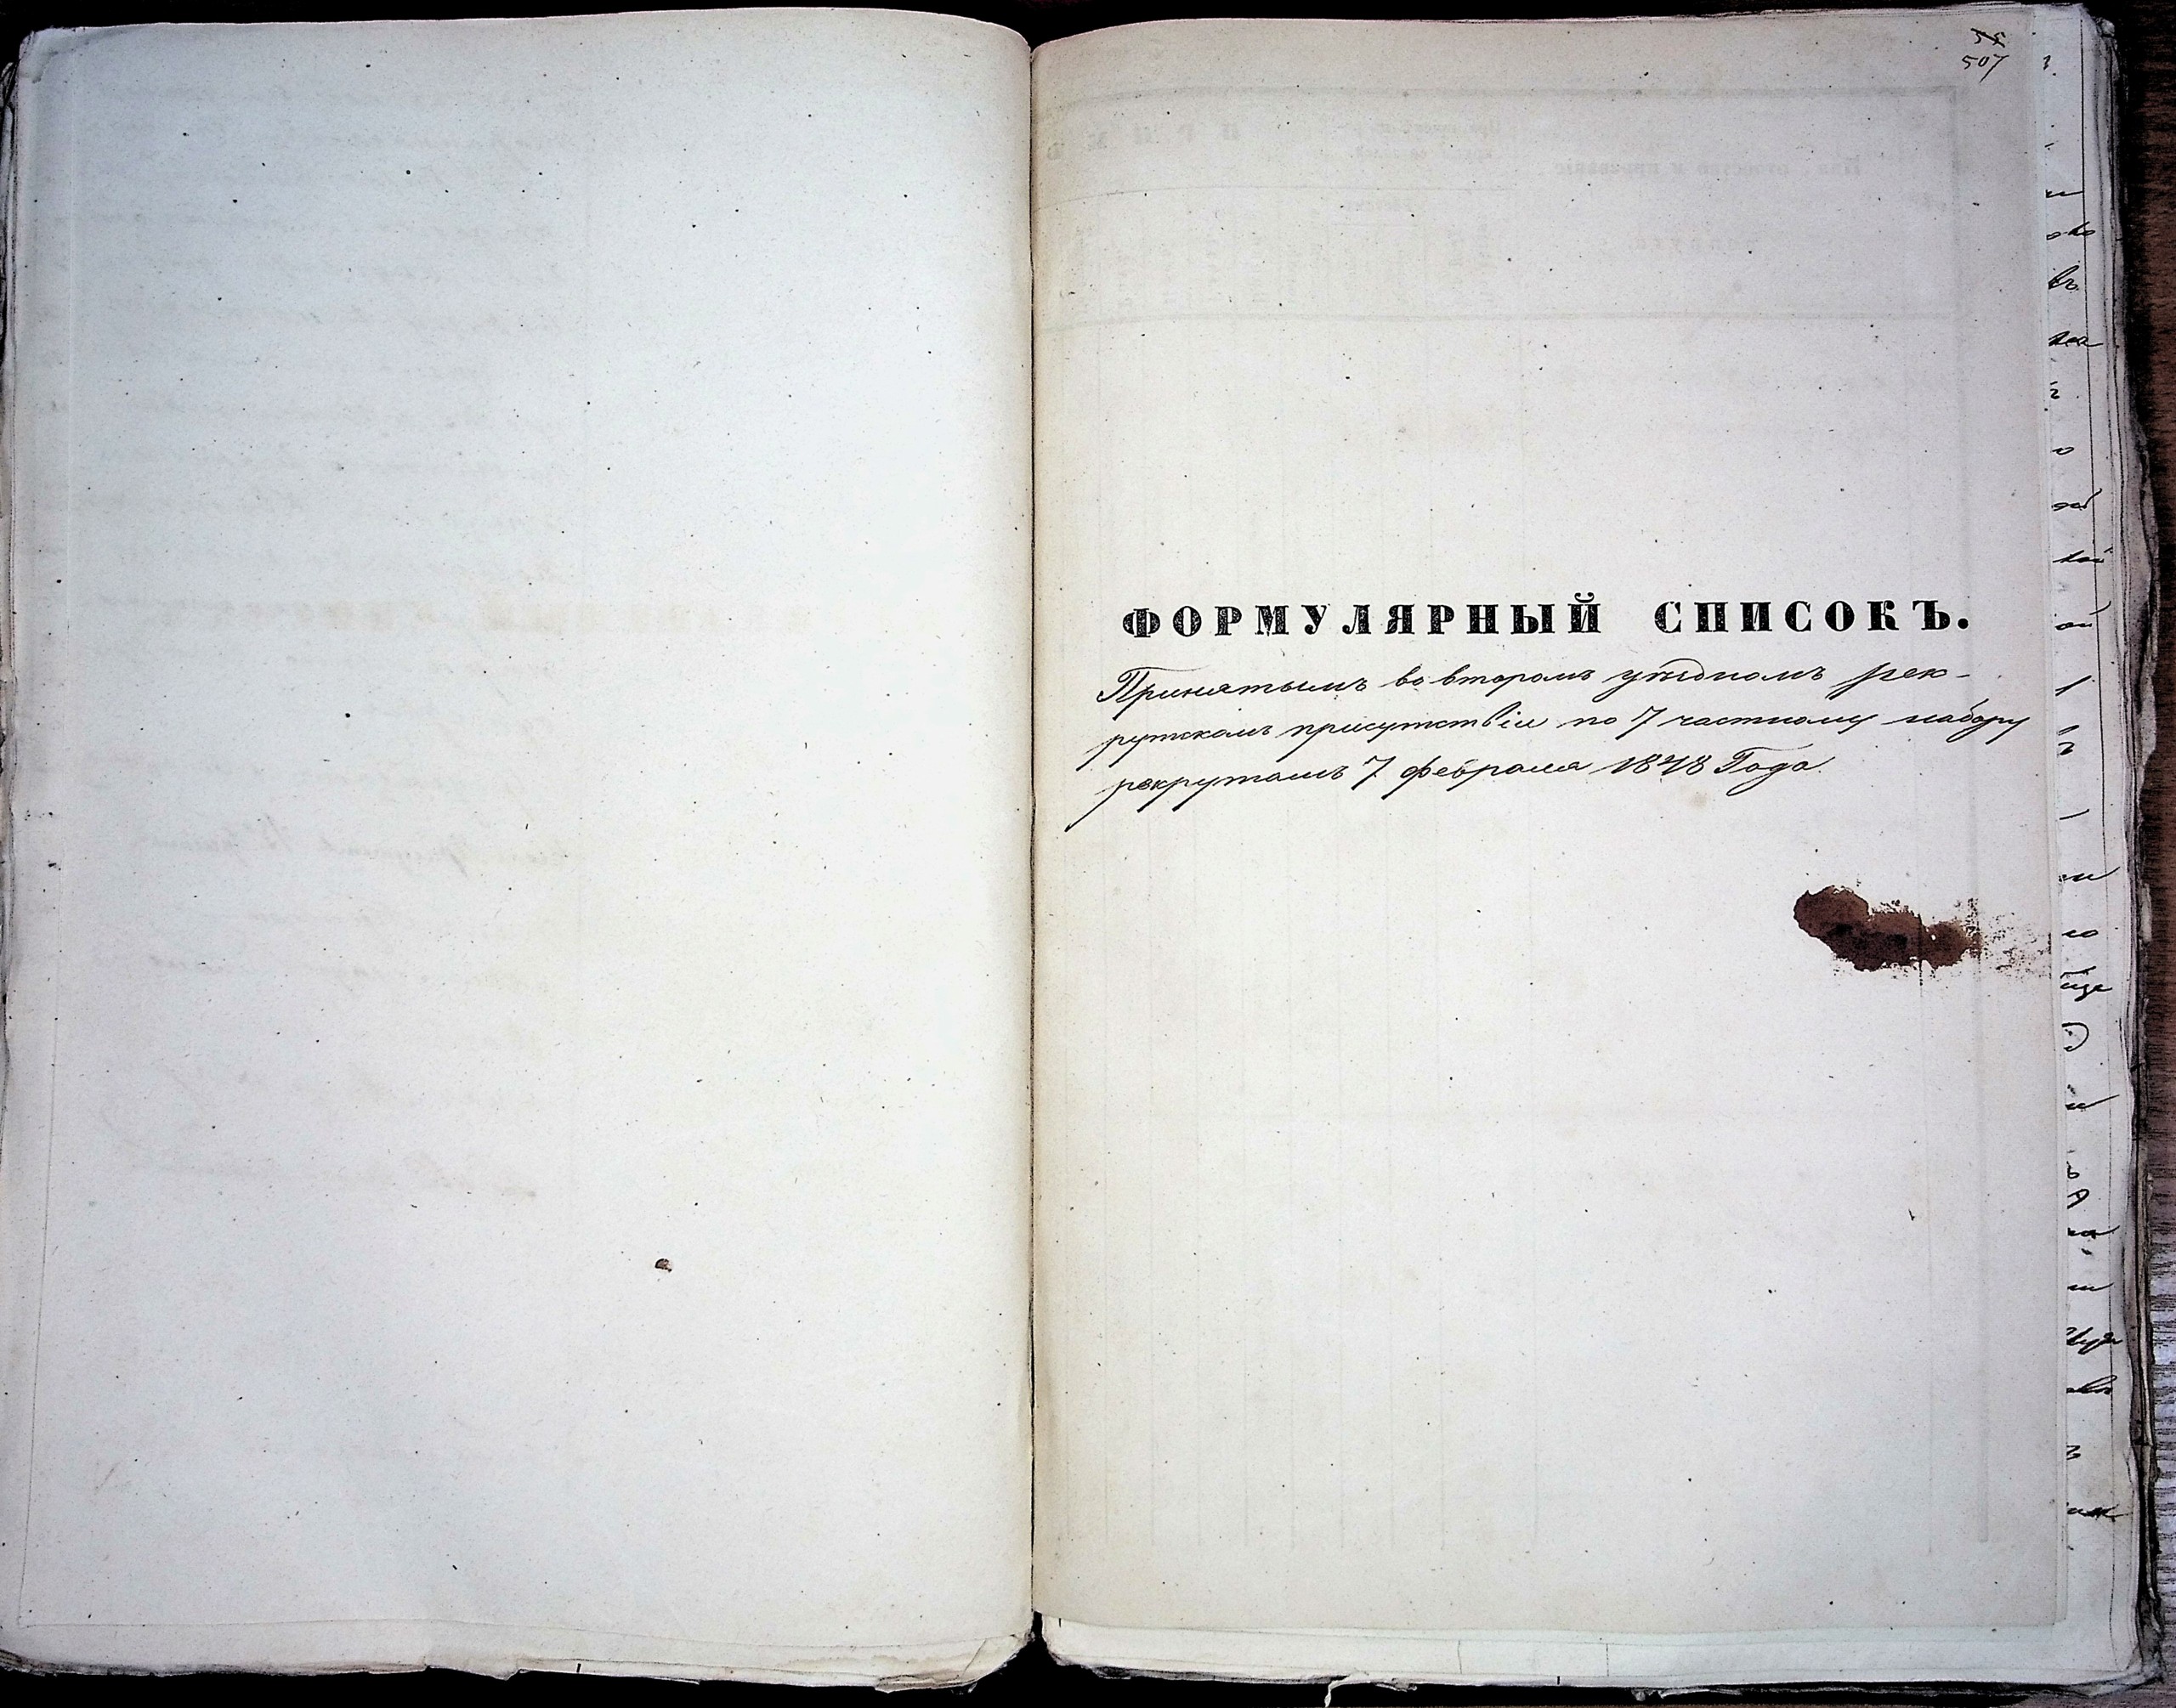 507
ФОРМУЛЯРНЫЙ СПИСОКЪ.
Принятымъ во второмъ уѣздномъ рек-
рутскомъ присутствіи по 7 частному набору
рекрутамъ 7 февраля 1848 Года.